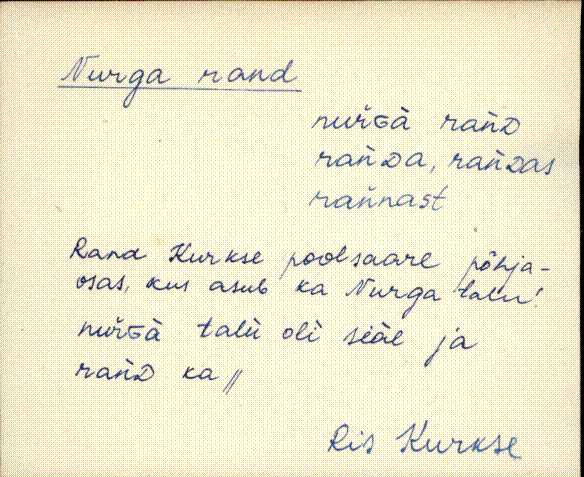 Nurga rand
nur̀ɢà rañᴅ
rañᴅa, rañᴅas
rañnast
Rand Kurkse poolsaare põhja-
osas, kus asub ka Nurga talu.
nur̀ɢà talù oli siäl ja
rañᴅ ka //
Ris Kurkse